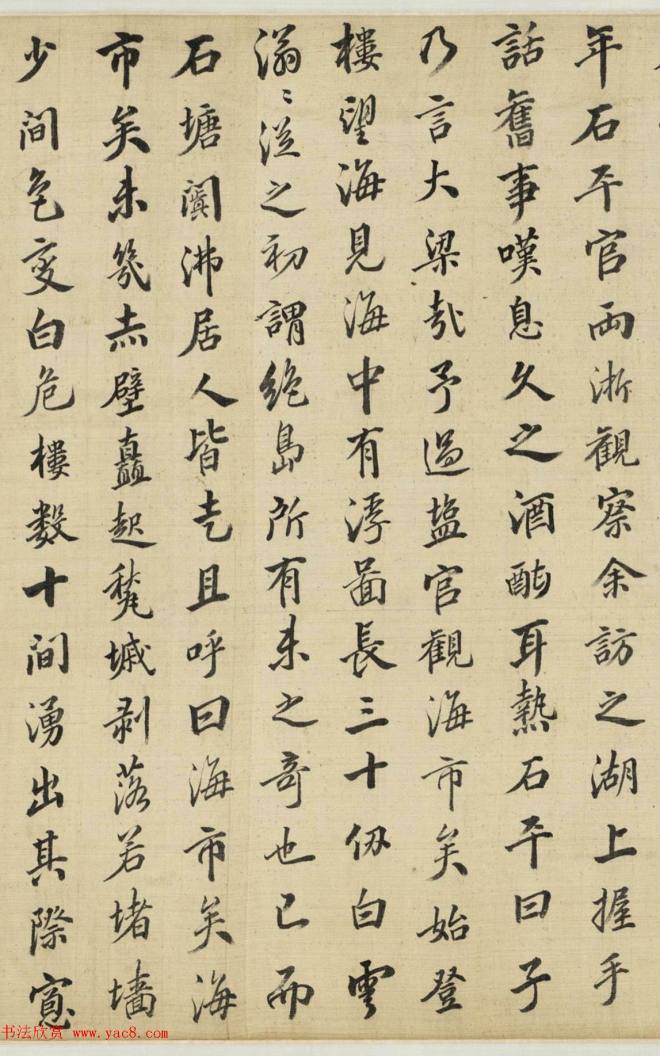 年石平官兩浙觀察余訪之湖上握手
話舊事嘆息久之酒酣耳熱石平曰子
乃言大梁耶予過塩官觀海市矣始登
樓望海見海中有浮啚長三十仞白雲
滃〻從之初謂絶島所有未之奇也已而
石塘闐沸居人皆走且呼曰海市矣海
市矣未幾赤壁矗起甃墄剥落若堵墻
少間色变白危樓数十間湧出其際窓
书法欣赏 www.yac8.com